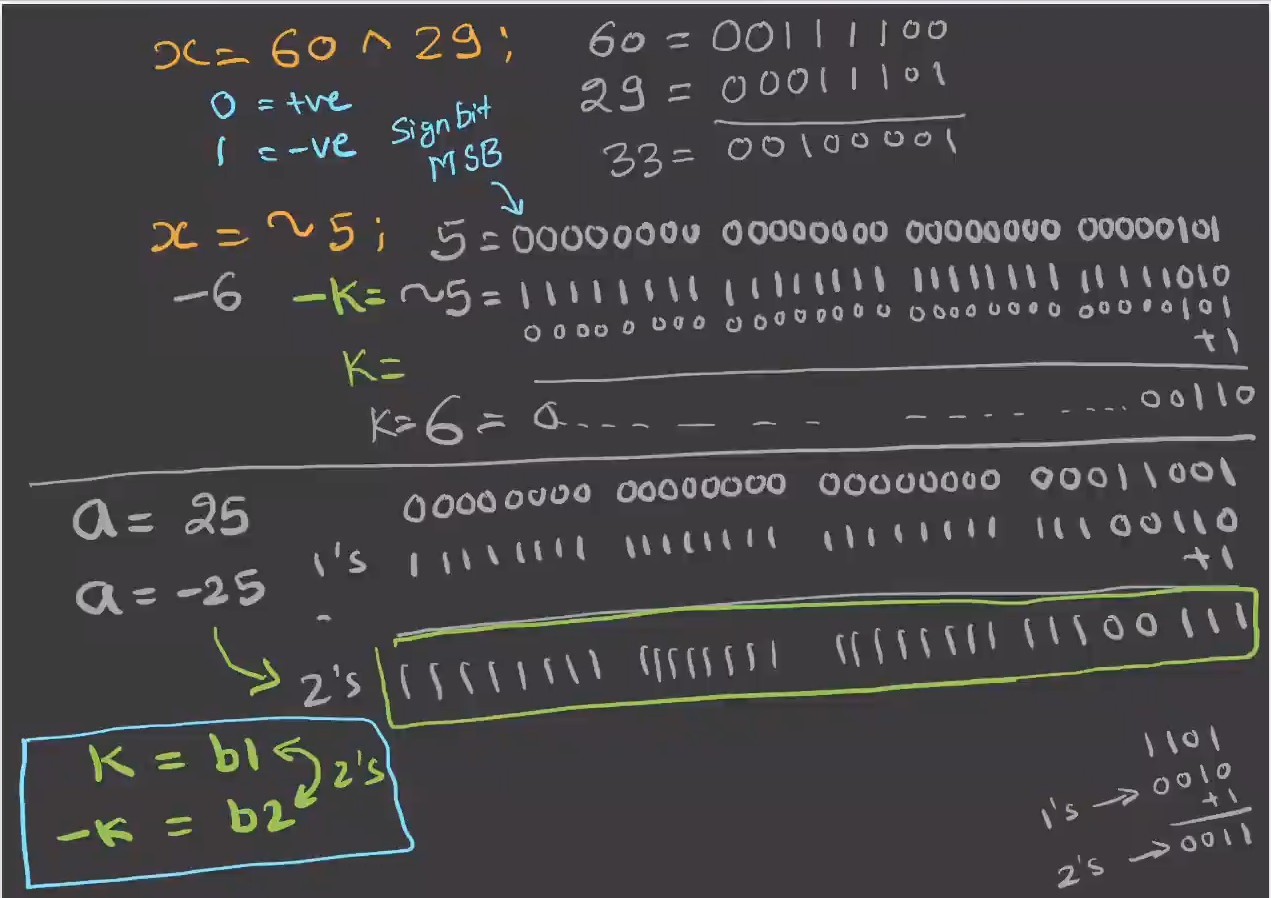 x = 60 ^ 29 ;
60 = 00111100
29 = 00011101
33 = 00100001
0 = +ve
1 = -ve
Sign bit
MSB
x = ~5 ; 5 = 00000000 00000000 00000000 00000101
-6 -K = ~5 = 11111111 11111111 11111111 11111010
00000000 00000000 00000000 00000101
+1
K =
K = 6 = 0.... - - — - - - - - - - ..... 00110
a = 25 00000000 00000000 00000000 00011001
1's 11111111 11111111 11111111 11100110
+1
a = -25
2's 11111111 11111111 11111111 11100111
K = b1
-K = b2
2's
1101
1's → 0010
+1
2's → 0011